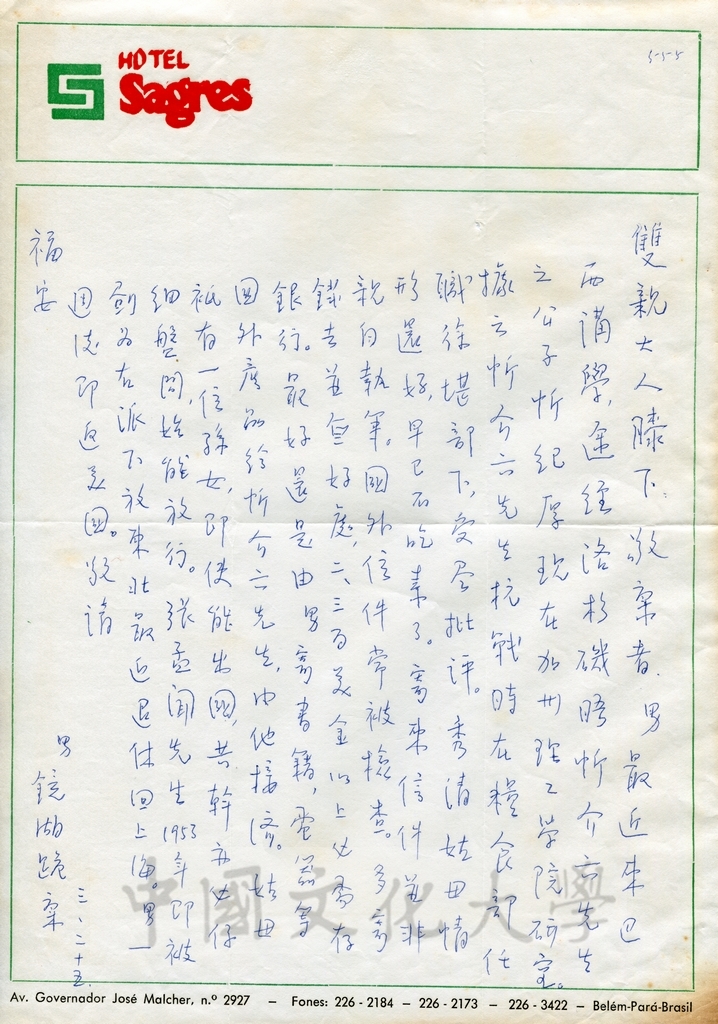 HOTEL
Sagres
5-5-5
雙親大人膝下：敬稟者，男最近來巴
西講學，途經洛杉磯晤忻介六先生
之公子忻紀厚現在加州理工學院研究。
據云忻介六先生抗戰時在糧食部任
職徐堪部下，受盡批評。秀清姑母情
形還好，早已不吃素了。寄來信件並非
親自執筆。國外信件常被檢查。多寄
錢去並無好處，二、三百美金以上必需存
銀行。最好還是由男寄書籍，電器等
國外產品給忻介六先生，由他接濟。姑母
祇有一信孫女，即使能出國，共幹亦必仔
細盤問，始能放行。張孟聞先生1953年即被
劃為右派下放東北最近退休回上海。男一
週後即返美國。敬請
福安
男
鏡湖跪稟
三、二十五
中國文化大學
Av. Governador José Malcher, n.º 2927 – Fones: 226-2184 – 226-2173 – 226-3422 – Belém-Pará-Brasil